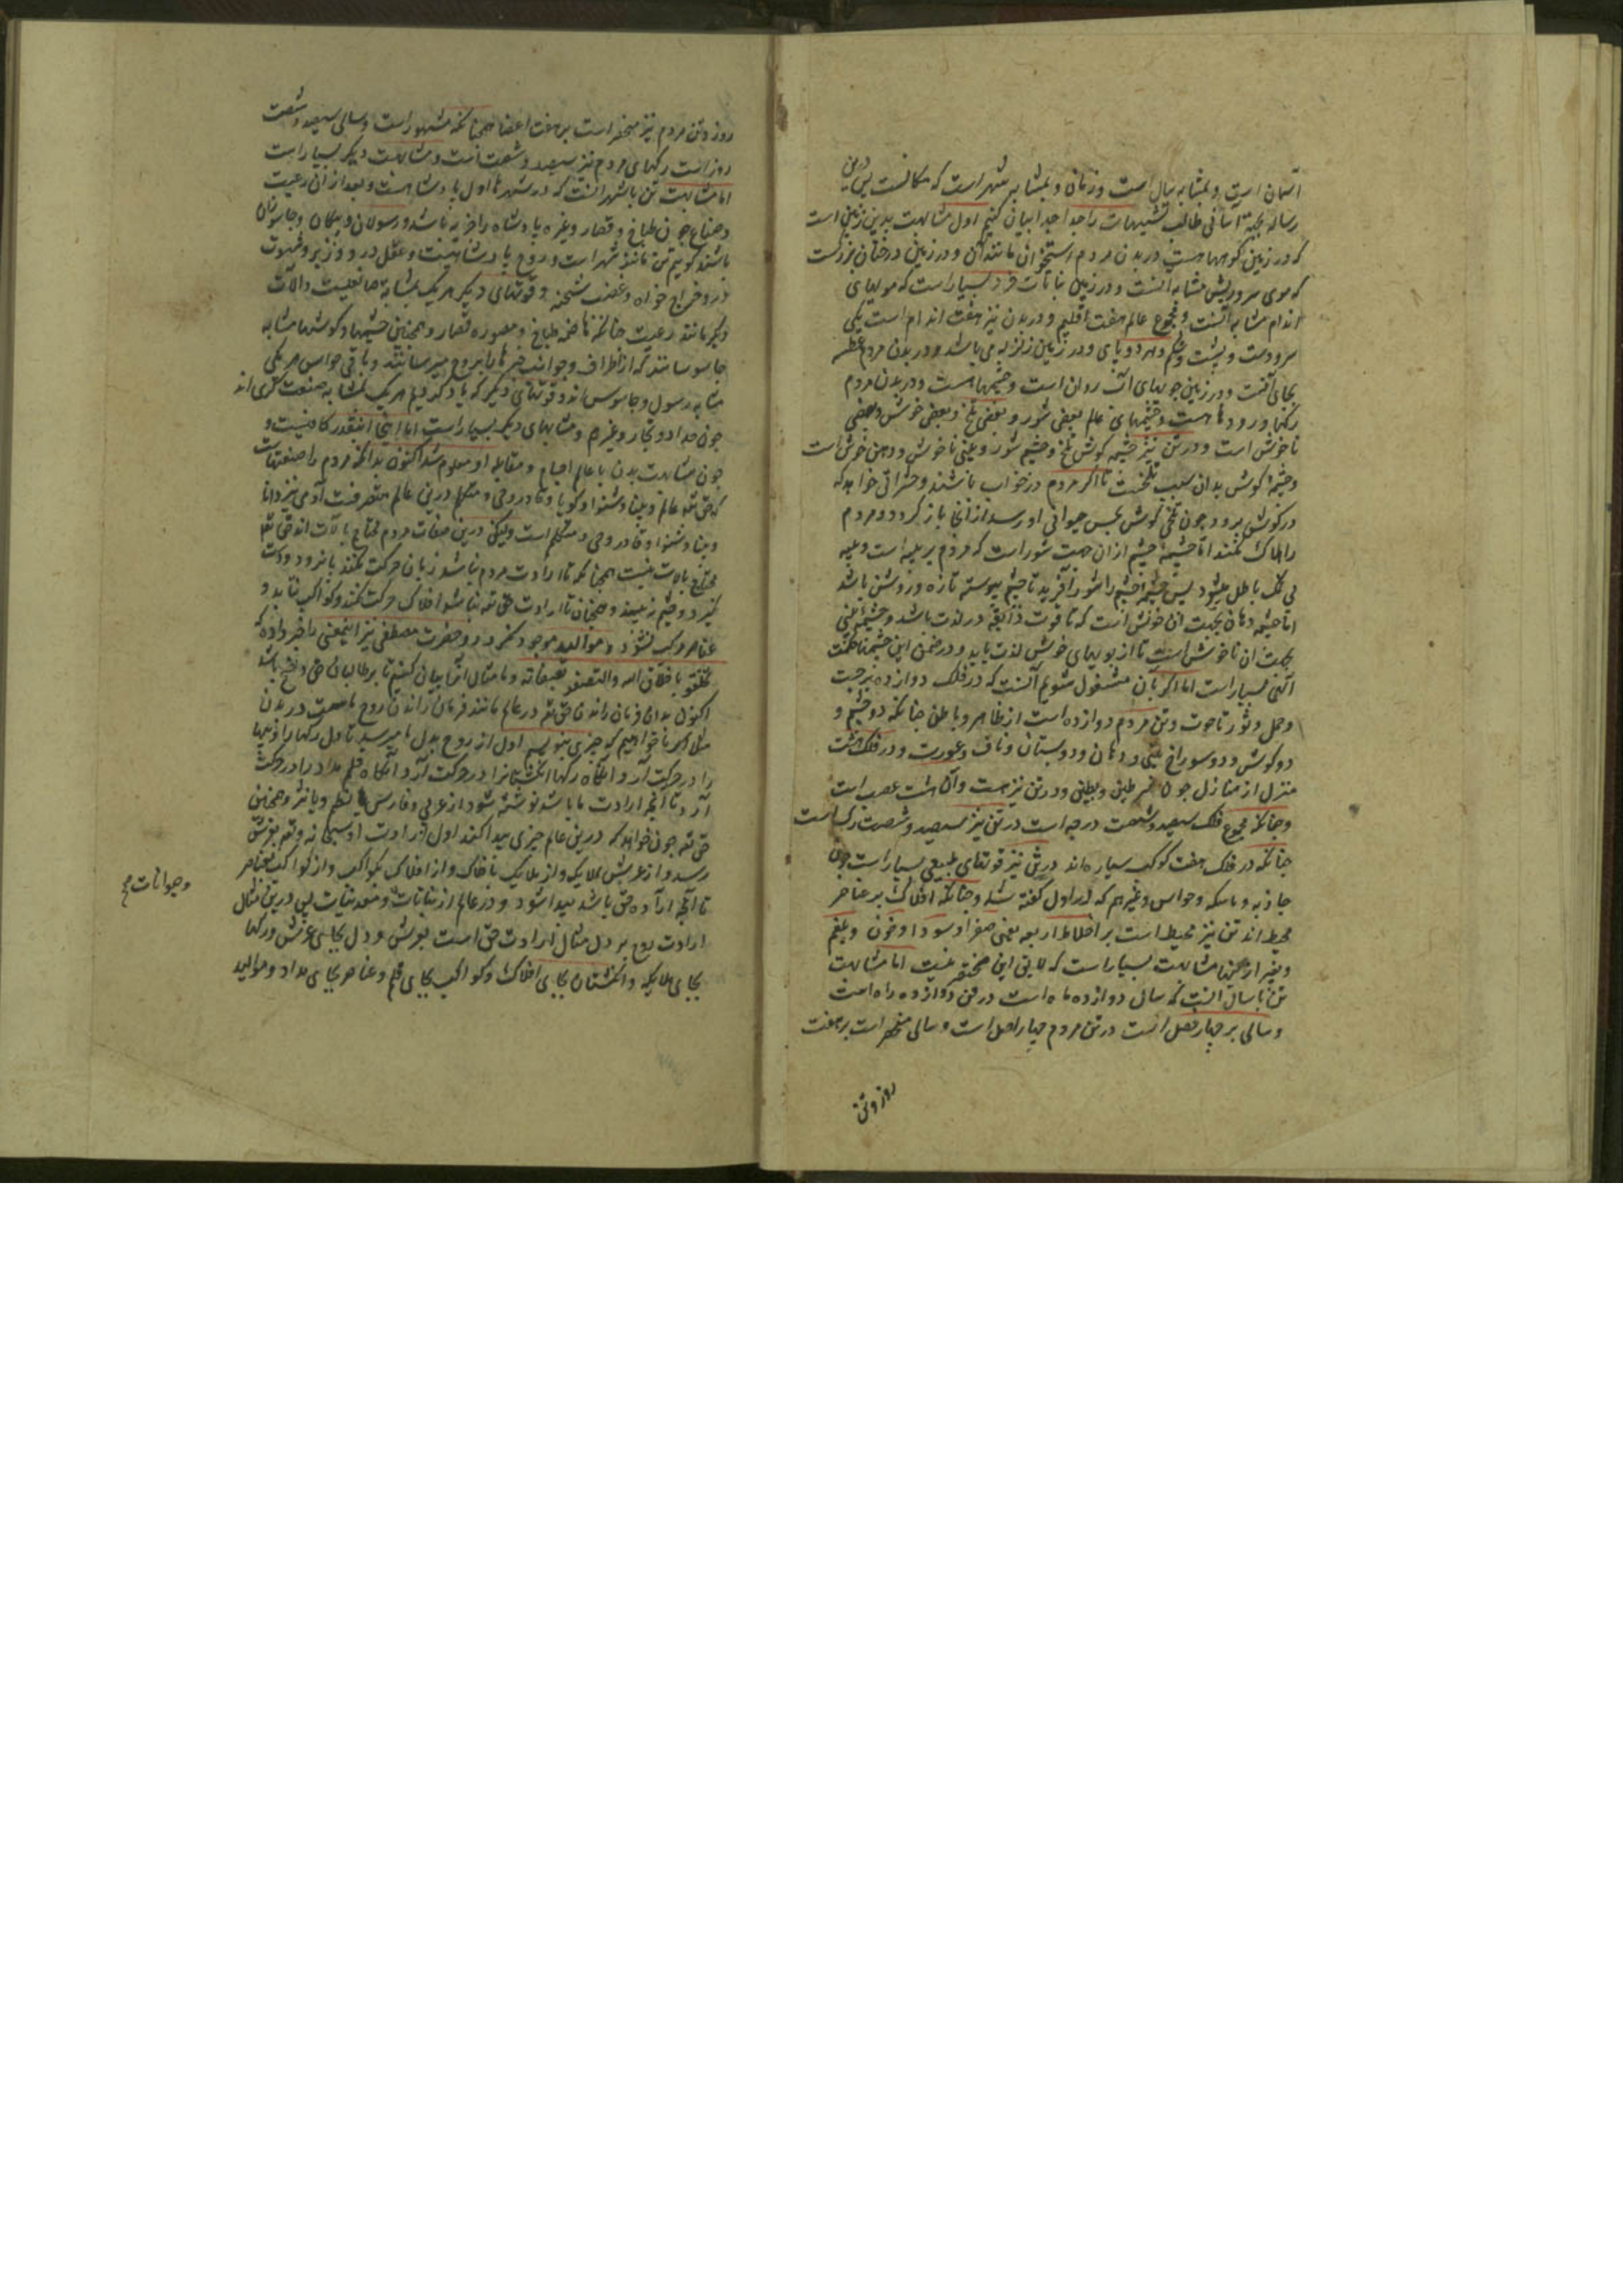 آسمان است و بمثابه سال است و زمان و بمثابه شهر است که مکانست پس درین
رساله بجهة آسانی طالب تشبیهات را جدا جدا بیان کنیم اول مشابهت بدین زمین است
که در زمین کوهها هست در بدن مردم استخوان مانند آن و در زمین درختان بزرگست
که موی سر و ریش مشابه آنست و در زمین نباتات خرد بسیار است که مویهای
اندام مشابه آنست و مجموع عالم هفت اقلیم و در بدن نیز هفت اندام است یکی
سر و دست و پشت و شکم و هر دو پای و در زمین زلزله می باشد و در بدن مردم عطسه
بجای آنست و در زمین جویهای آب روان است و چشمها هست و در بدن مردم
رکها و رودها هست و چشمهای عالم بعضی شور و بعضی تلخ و بعضی خوش و بعضی
ناخوش است و در تن نیز چشمه کوش تلخ و چشم شور و بینی ناخوش و دهن خوش است
و چشمه کوش بدان سبب تلخست تا اکر مردم در خواب باشند و حشراتی خواهد که
در کوش برود چون تلخی کوش بحس حیوانی او رسد از آنجا باز کردد و مردم
را هلاک نکند اما چشمه چشم از آن جهت شور است که مردم بر پیه است و پیه
بی نمک باطل میشود پس چشمه چشم را شور آفرید تا چشم پیوسته تازه و روشن باشد
اما چشمه دهان بجهت آن خوش است که تا قوت ذائقه در لذت باشد و چشمه بینی
بجهت آن ناخوش است تا از بویهای خوش لذت یابد و در ضمن این چشمها حکمت
الهی بسیار است اما اکر بآن مشغول شویم آنست که در فلک دوازده برجست
و حمل و ثور تا حوت و تن مردم دوازده است از ظاهر و باطن چنانکه دو چشم و
دو کوش و دو سوراخ بینی و دهان و دو پستان و ناف و عورت و در فلک هشت
منزل از منازل چون شرطین و بطین و در تن نیز هست و آن هشت عصب است
و چنانکه مجموع فلک سیصد و شصت درجه است در تن نیز سیصد و شصت رک است
چنانکه در فلک هفت کوکب سیاره اند در تن نیز قوتهای طبیعی بسیار است چون
جاذبه و ماسکه و حواس و غیرهم که در اول کفته شد و چنانکه افلاک بر عناصر
محیط اند تن نیز محیط است بر اخلاط اربعه یعنی صفرا و سودا و خون و بلغم
و بغیر از اینها مشابهت بسیار است که لایق این مختصر نیست اما مشابهت
تن با سال آنست که سال دوازده ماه است در تن دوازده راه است
و سالی بر چهار فصل است در تن مردم چهار اصل است و سالی منحصر است بر هفت
روز و تن
روز و تن مردم نیز منحصر است بر هفت اعضا همچنانکه مشهور است و سالی سیصد و شصت
روز است رکهای مردم نیز سیصد و شصت است و مشابهت دیکر بسیار است
اما مشابهت تن با شهر آنست که در شهرها اول پادشاهست و بعد از آن رعیت
و صناع چون طباخ و قصار و غیره پادشاه را خزینه باشد و رسولان و پیکان و جاسوسان
باشند کوییم تن مانند شهر است و روح پادشاهست و عقل در و وزیر و شهوت
در و خراج خواه و غضب شحنه و قوتهای دیکر هر یک بمثابه صانعیست و آلات
دیکر مانند رعیت چنانکه هاضمه طباخ و مصوره قصار و همچنین چشمها و کوشها مشابه
جاسوسانند که از اطراف و جوانب خبرها را بروح میرسانند و باقی حواس هر یکی
مثابه رسول و جاسوس اند و قوتهای دیکر که یاد کردیم هر یک بمثابه صنعت کری اند
چون حداد و نجار و غیرهم و مثابهای دیکر بسیار است اما اینجا اینقدر کافیست و
چون مشابهت بدن با عالم اجسام و مقابله او معلوم شد اکنون بدانکه مردم را صنعتهاست
که حق تعه عالم و بینا و شنوا و کویا و قادر و حی و متکلم درین عالم متصرفست آدمی نیز دانا
و بینا و شنوا و قادر و حی و متکلم است ولیکن درین صفات مردم محتاج بآلات اند حق تعه
محتاج بآلات نیست همچنانکه تا ارادت مردم نباشد زبان حرکت نکند پا نرود و دست
نکیرد و چشم نبیند و همچنان تا ارادت حق تعه نباشد افلاک حرکت نکند و کواکب نتابد و
عناصر مرکب نشود و موالید موجود نکردد و حضرت مصطفی نیز اینمعنی را خبر داده که
تخلقوا باخلاق الله و اتصفوا بصفاته و ما مثال آنرا بیان کنیم تا بر طالبان حق واضح باشد
اکنون بدان فرمان راندن حق تعه در عالم مانند فرمان راندن روح ماست در بدن
مثلا اکر ما خواهیم که چیزی بنویسیم اول از روح بدل ما میرسد تا دل رکها را و پیها
را در حرکت آرد و آنکاه رکها انکشتانرا در حرکت آرد و آنکاه قلم مداد را در حرکت
آرد تا آنچه ارادت ما باشد نوشته شود از عربی و فارسی یا نظم و یا نثر و همچنین
حق تعه چون خواهد که درین عالم چیزی پیدا کند اول از ارادت او سبحانه و تعه بعرش
رسد و از عرش بملایک و از ملایک بافلاک و از افلاک بکواکب و از کواکب بعناصر
تا آنچه اراده حق باشد پیدا شود و در عالم از نباتات و معدنیات پس درین مثال
وحیوانات صح
ارادت روح بر دل مثال ارادت حق است بعرش و دل بجای عرش و رکها
بجای ملایکه و انکشتان بجای افلاک و کواکب بجای قلم و عناصر بجای مداد و موالید